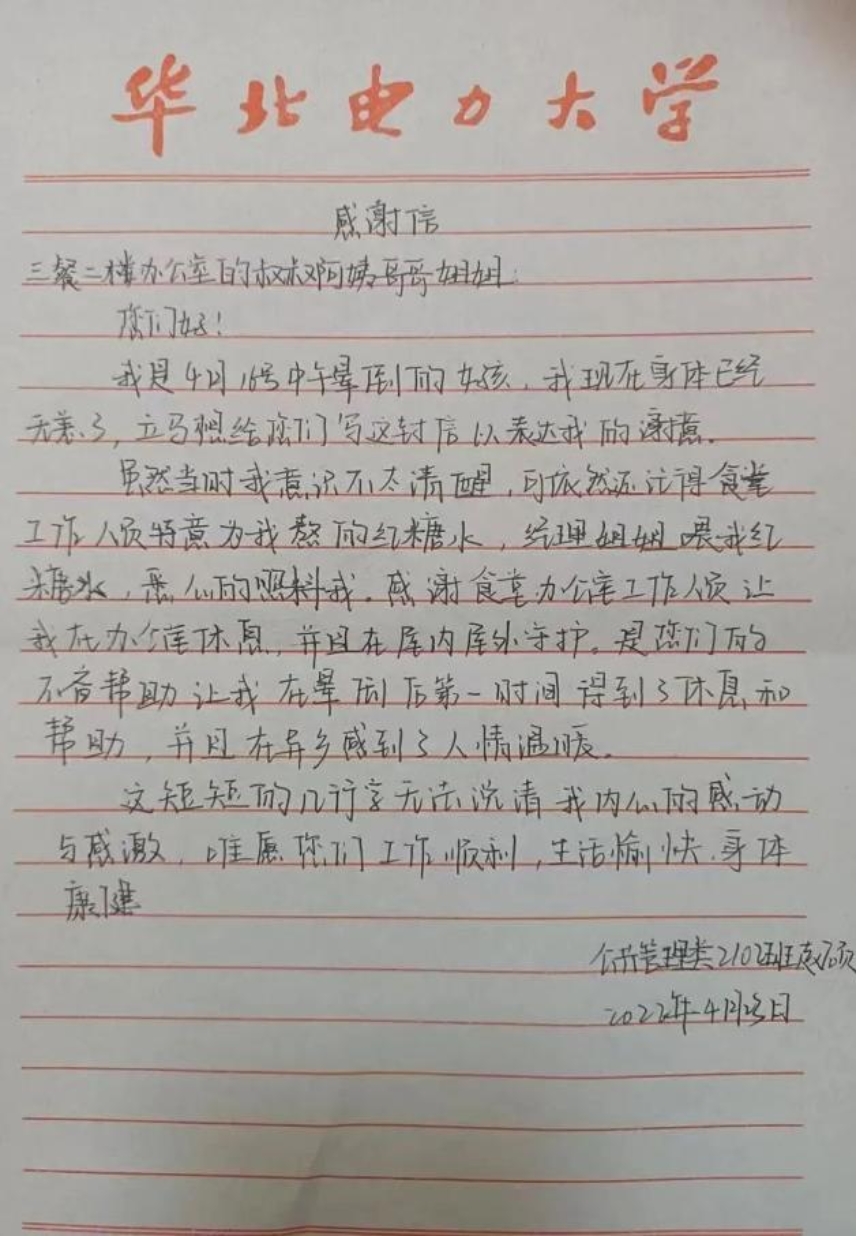 华北电力大学
感谢信
三餐二楼办公室的叔叔阿姨哥哥姐姐:
您们好!
我是4月16号中午晕倒的女孩,我现在身体已经
无恙了,立马想给您们写这封信以表达我的谢意。
虽然当时我意识不太清醒,可依然还记得食堂
工作人员特意为我熬的红糖水,经理姐姐喂我红
糖水,悉心的照料我。感谢食堂办公室工作人员让
我在办公室休息,并且在屋内屋外守护。是您们的
不吝帮助让我在晕倒后第一时间得到了休息和
帮助,并且在异乡感到了人情温暖。
这短短的几行字无法说清我内心的感动
与感激,唯愿您们工作顺利,生活愉快,身体
康健
管理类2102班赵
2022年4月 日